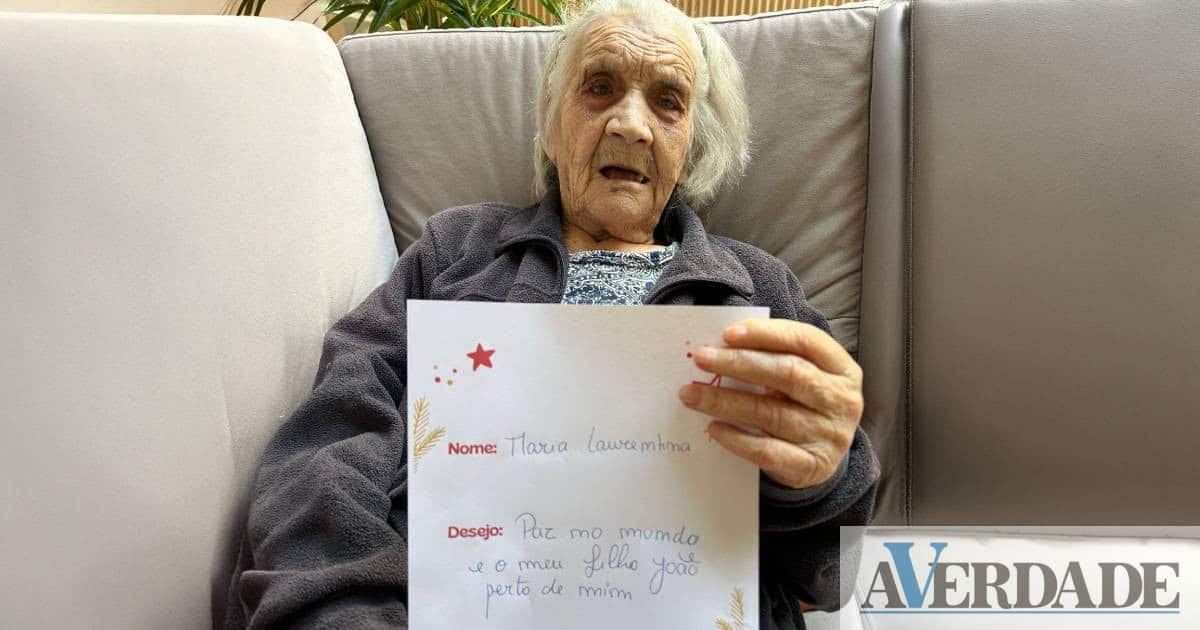 Nome: Maria Laurentina
Desejo: Paz no mundo
e o meu filho João
perto de mim
AVERDADE